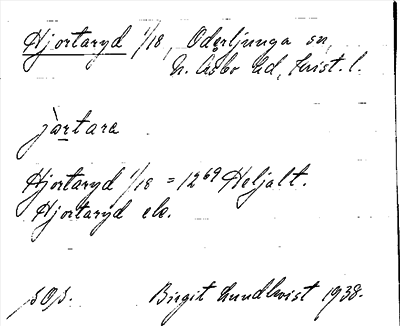 Hjortaryd 1/18, Oderljunga sn,
N. Åsbo hd, Krist. l.
jàrtara
Hjortaryd 1/18 = 12⁶⁹ Heljalt.
Hjortaryd elr.
SOS. Birgit Lundkvist 1938.